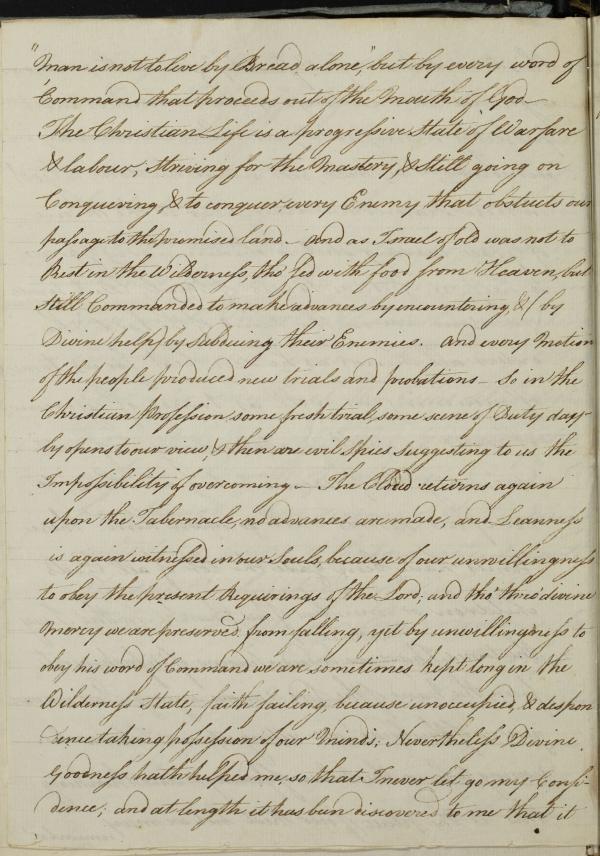 "Man is not to live by Bread alone," but by every word of
Command that proceeds out of the Mouth of God—
The Christian Life is a progressive State of Warfare
& labour, striving for the Mastery, & Still going on
Conquering & to conquer every Enemy that obstucts our
passage to the promised land — and as Israel of old was not to
Rest in the Wilderness, tho' Fed with food from Heaven, but
still Commanded to make advances by encountering, & (by
Divine help) by Subduing their Enemies. and every Motion
of the people produced new trials and probations — So in the
Christian Profession, some fresh trial, some scene of Duty day
by opens to our view, & then are evil Spies Suggesting to us the
Impossibility of overcoming — The Cloud returns again
upon the Tabernacle, no advances are made, and Leanness
is again witnessed in our Souls, because of our unwillingness
to obey the present Requirings of the Lord; and tho' thro' divine
Mercy we are preserved from falling, yet by unwillingness to
obey his word of Command we are sometimes kept long in the
Wilderness State, faith failing, because unoccupied, & despon
dence taking possession of our Minds; Nevertheless Divine
Goodness hath helped me, so that I never let go my Confi-
dence; and at length it has been discovered to me that it